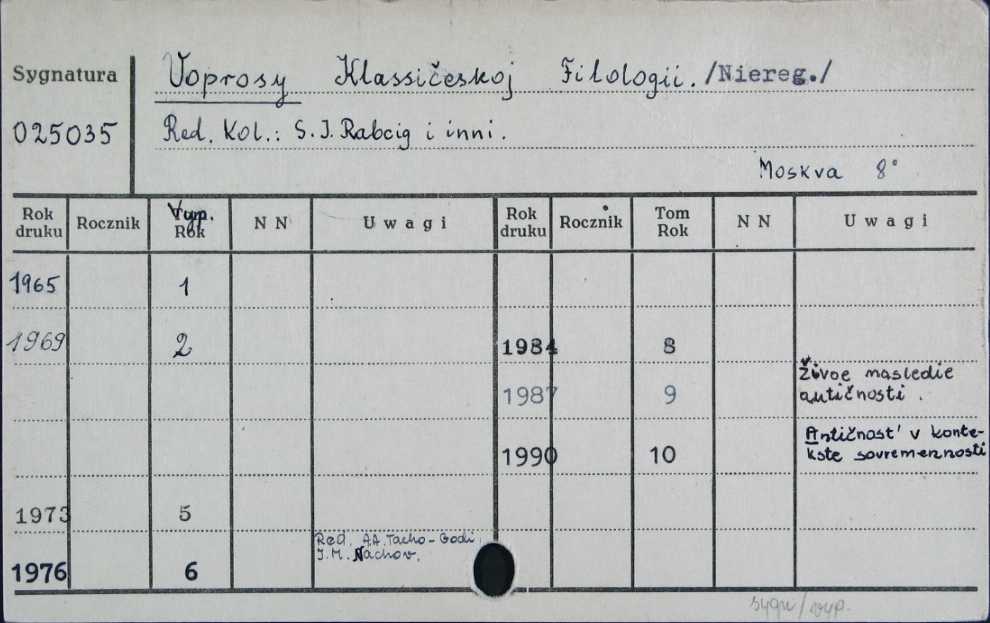 Sygnatura
Voprosy Klassičeskoj Filologii. /Niereg./
025035
Red. Kol.: S.I. Rabcig i inni.
Moskva 8°
Rok druku Rocznik Vyp. Rok N N Uwagi Rok druku Rocznik Tom Rok N N Uwagi
1965 1
1969 2 1984 8
1987 9 Živoe nasledie
antičnosti.
1990 10 Antičnost' v konte-
kste sovremennosti
1973 5
1976 6 Red. A.A. Tacho-Godi,
I.M. Nachov.
sygn/vyp.